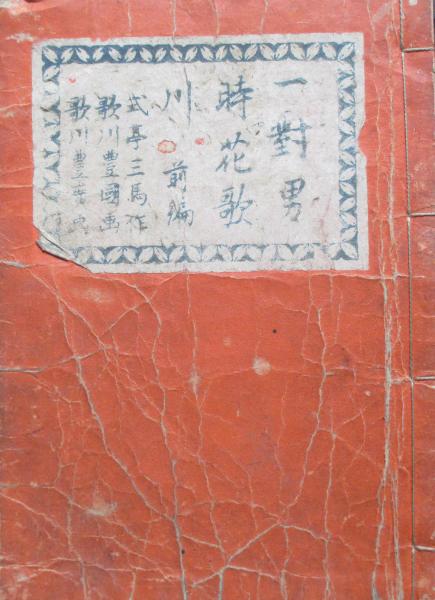 一對男
時花歌
川 前編
式亭三馬作
歌川豊國画
歌川豊廣画